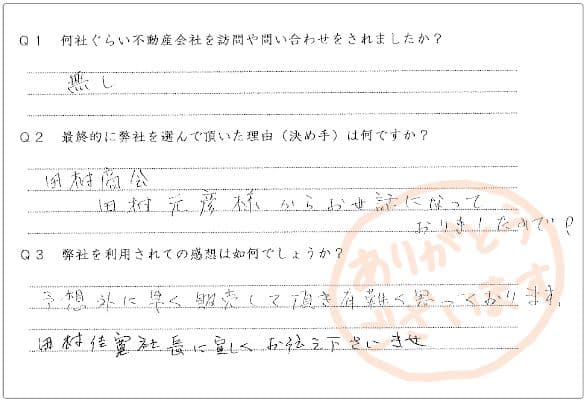 Q1 何社ぐらい不動産会社を訪問や問い合わせをされましたか？
無し
Q2 最終的に弊社を選んで頂いた理由（決め手）は何ですか？
田村商会
田村元彦様からお世話になって
おりましたので
Q3 弊社を利用されての感想は如何でしょうか？
予想外に早く販売して頂き有難く思っております。
田村佳寛社長に宜しくお伝え下さいませ
ありがとう
ございます